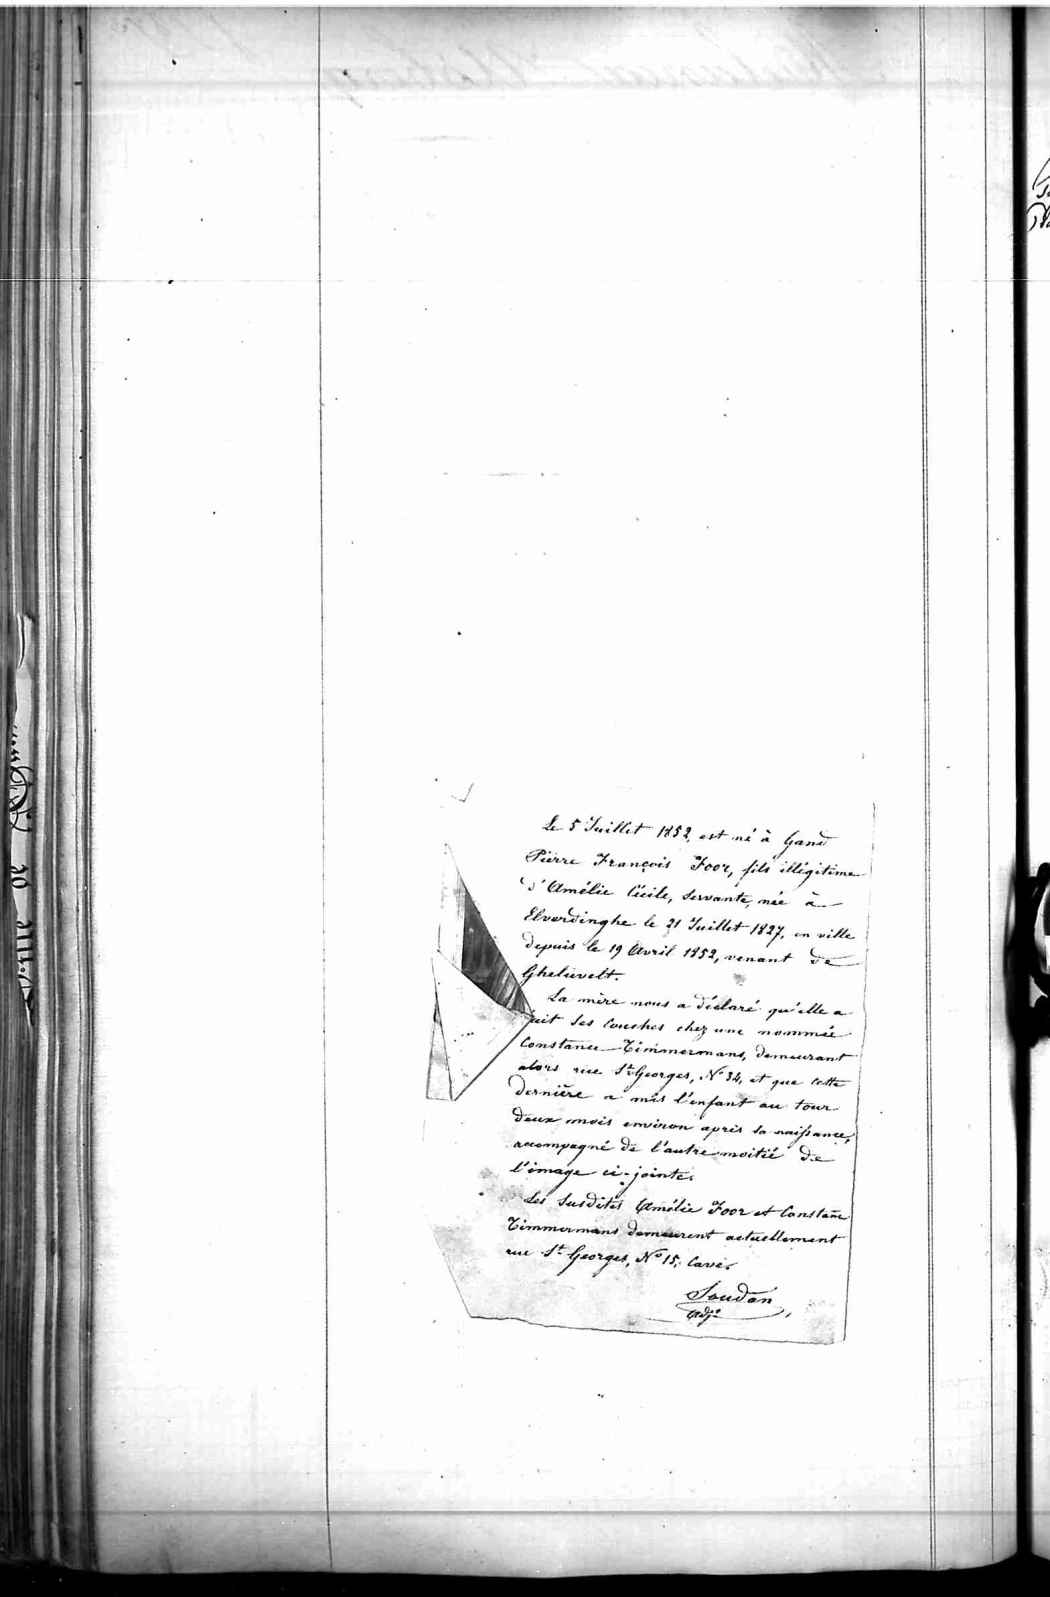 Le 5 Juillet 1852, est né à Gand
Pierre François Foor, fils illégitime
d'Amélie Cécile, servante, née à
Elverdinghe le 21 Juillet 1827, en ville
depuis le 19 Avril 1852, venant de
Gheluvelt.
La mère nous a déclaré qu'elle a
fait ses couches chez une nommée
Constance Timmermans, demeurant
alors rue St Georges, No 34, et que cette
dernière a mis l'enfant au tour
deux mois environ après sa naissance,
accompagné de l'autre moitié de
l'image ci-jointe.
Les susdites Amélie Foor et Constance
Timmermans demeurent actuellement
rue St Georges, No 15, cave.
Soudan
Adjt